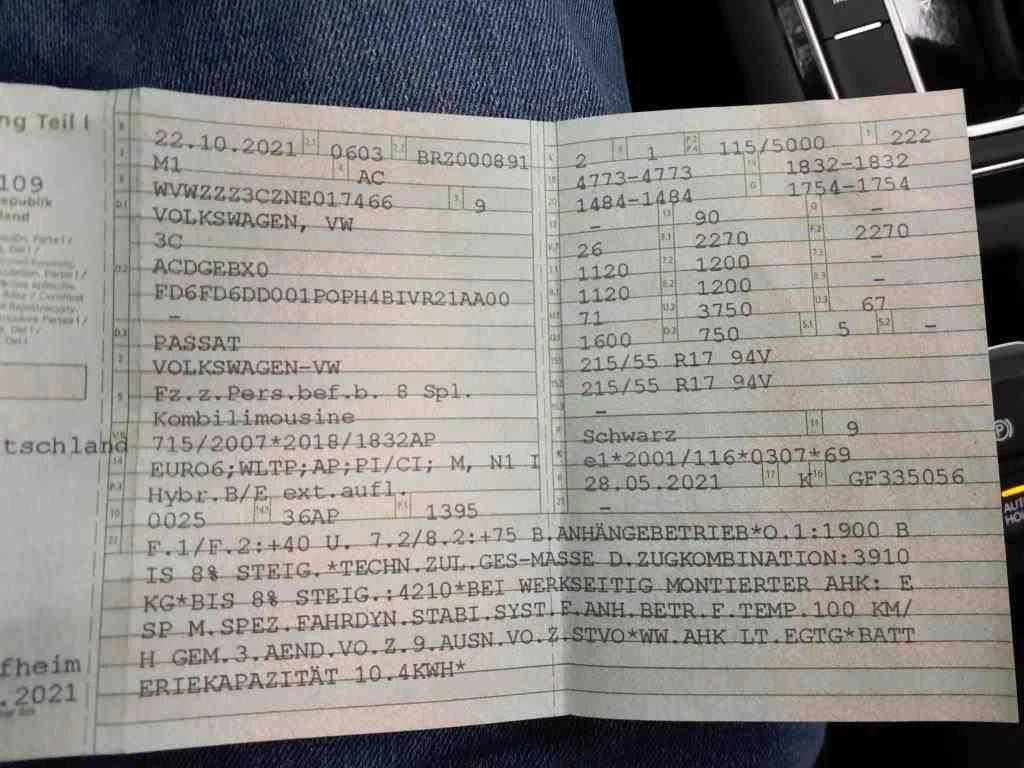 ng Teil I
109
epublik
land
tschland
fheim
.2021
22.10.2021 0603 BRZ000891
M1 AC
WVWZZZ3CZNE017466 9
VOLKSWAGEN, VW
3C
ACDGEBX0
FD6FD6DD001POPH4BIVR21AA00
–
PASSAT
VOLKSWAGEN-VW
Fz.z.Pers.bef.b. 8 Spl.
Kombilimousine
715/2007*2018/1832AP
EURO6;WLTP;AP;PI/CI; M, N1 I
Hybr.B/E ext.aufl.
0025 36AP 1395
2 1 115/5000 222
4773-4773 1832-1832
1484-1484 1754-1754
– 90 –
26 2270 2270
1120 1200 –
1120 1200 –
71 3750 67
1600 750 5 –
215/55 R17 94V
215/55 R17 94V
–
Schwarz 9
e1*2001/116*0307*69
28.05.2021 K GF335056
–
F.1/F.2:+40 U. 7.2/8.2:+75 B.ANHÄNGEBETRIEB*O.1:1900 B
IS 8% STEIG.*TECHN.ZUL.GES-MASSE D.ZUGKOMBINATION:3910
KG*BIS 8% STEIG.:4210*BEI WERKSEITIG MONTIERTER AHK: E
SP M.SPEZ.FAHRDYN.STABI.SYST.F.ANH.BETR.F.TEMP.100 KM/
H GEM.3.AEND.VO.Z.9.AUSN.VO.Z.STVO*WW.AHK LT.EGTG*BATT
ERIEKAPAZITÄT 10.4KWH*
AUT
HO